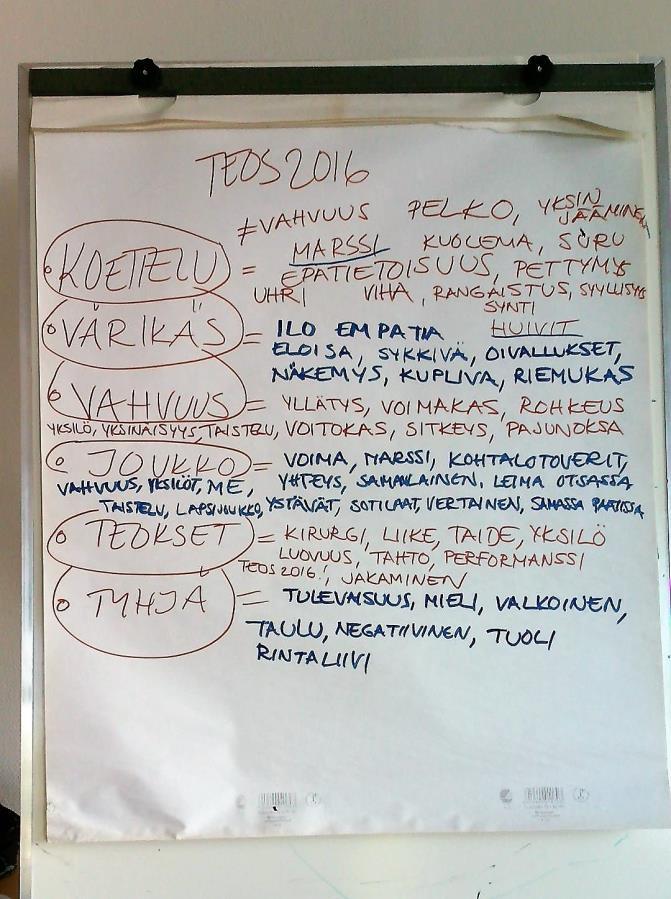 TEOS 2016
≠VAHVUUS PELKO, YKSIN JÄÄMINEN
KOETTELU = MARSSI KUOLEMA, SURU
EPÄTIETOISUUS, PETTYMYS
UHRI VIHA, RANGAISTUS, SYYLLISYYS
SYNTI
VÄRIKÄS = ILO EMPATIA HUIVIT
ELOISA, SYKKIVÄ, OIVALLUKSET,
NÄKEMYS, KUPLIVA, RIEMUKAS
VAHVUUS = YLLÄTYS, VOIMAKAS, ROHKEUS
YKSILÖ, YKSINÄISYYS, TAISTELU, VOITOKAS, SITKEYS, PAJUNOKSA
JOUKKO = VOIMA, MARSSI, KOHTALOTOVERIT,
VAHVUUS, YKSILÖT, ME, YHTEYS, SAMANLAINEN, LEIMA OTSASSA
TAISTELU, LAPSIJOUKKO, YSTÄVÄT, SOTILAAT, VERTAINEN, SAMASSA PAATISSA
TEOKSET = KIRURGI, LIIKE, TAIDE, YKSILÖ
LUOVUUS, TAHTO, PERFORMANSSI
TEOS 2016!, JAKAMINEN
TYHJÄ = TULEVAISUUS, MIELI, VALKOINEN,
TAULU, NEGATIIVINEN, TUOLI
RINTALIIVI